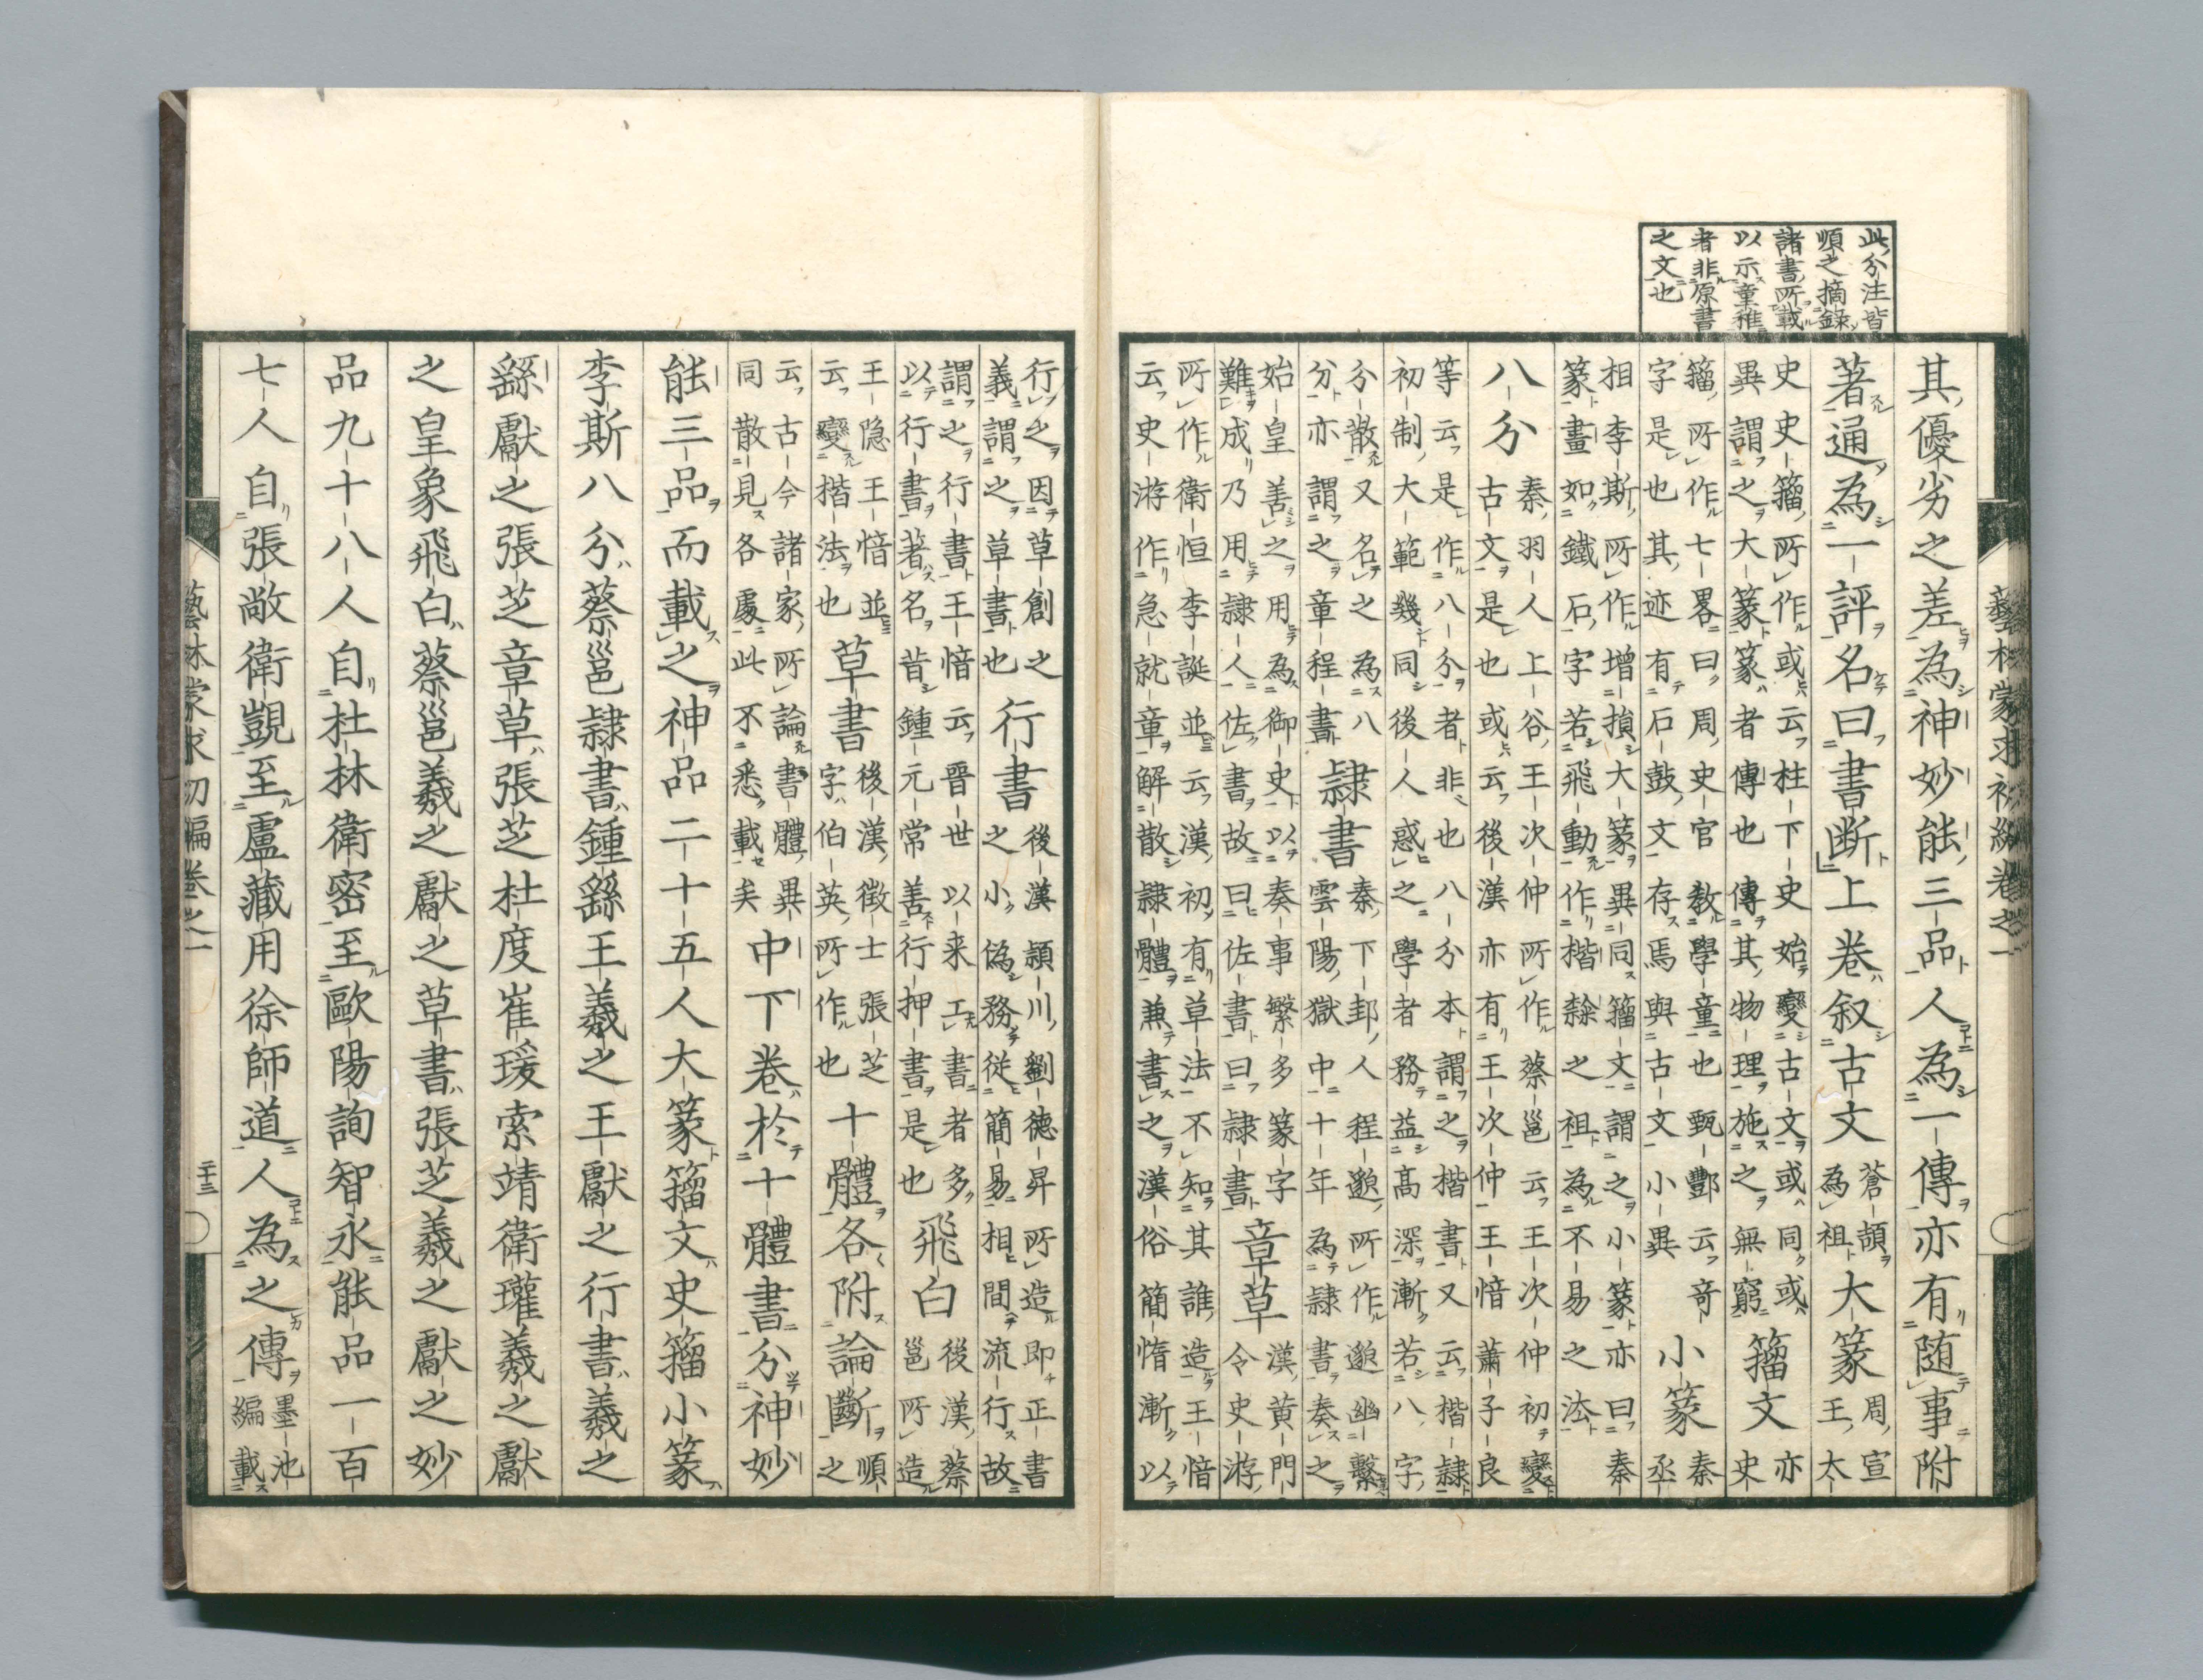 此分注皆
順之摘錄
諸書所載
以示童稚
者非原書
之文也
藝林蒙求初編巻之一
其優劣之差為神妙能三品人為一傳亦有随事附
著通為一評名曰書断上巻叙古文蒼頡為祖大篆周宣王太
史史籀所作或云柱下史始變古文或同或異謂之大篆篆者傳也傳其物理施之無窮籀文亦史
籀所作七畧曰周史官教學童也甄酆云奇字是也其迹有石鼓文存焉與古文小異小篆秦丞
相李斯所作增損大篆異同籀文謂之小篆亦曰秦篆畫如鐵石字若飛動作楷隸之祖為不易之法
八分秦羽人上谷王次仲所作蔡邕云王次仲初變古文是也或云後漢亦有王次仲王愔蕭子良
等云是作八分者非也八分本謂之楷書又云楷隸初制大範幾同後人惑之學者務益高深漸若八字
分散又名之為八分亦謂之章程書隸書秦下邽人程邈所作邈幽繫雲陽獄中十年為隸書奏之
始皇善之用為御史以奏事繁多篆字難成乃用隸人佐書故曰佐書曰隸書章草漢黄門令史游
所作衛恒李誕並云漢初有草法不知其誰造王愔云史游作急就章解散隸體兼書之漢俗簡惰漸以
行之因草創之義謂之草書也行書後漢頴川劉德昇所造即正書之小偽務從簡易相間流行故
謂之行書王愔云晋世以来工書者多以行書著名昔鍾元常善行押書是也飛白後漢蔡邕所造
王隐王愔並云變楷法也草書後漢徴士張芝字伯英所作也十體各附論斷順之
云古今諸家所論書體異同散見各處此不悉載矣中下巻於十體書分神妙
能三品而載之神品二十五人大篆籀文史籀小篆
李斯八分蔡邕隷書鍾繇王羲之王獻之行書羲之
繇獻之張芝章草張芝杜度崔瑗索靖衛瓘羲之獻
之皇象飛白蔡邕羲之獻之草書張芝羲之獻之妙
品九十八人自杜林衛密至歐陽詢智永能品一百
七人自張敞衛覬至盧藏用徐師道人為之傳墨池編載
藝林蒙求初編巻之一
二十三